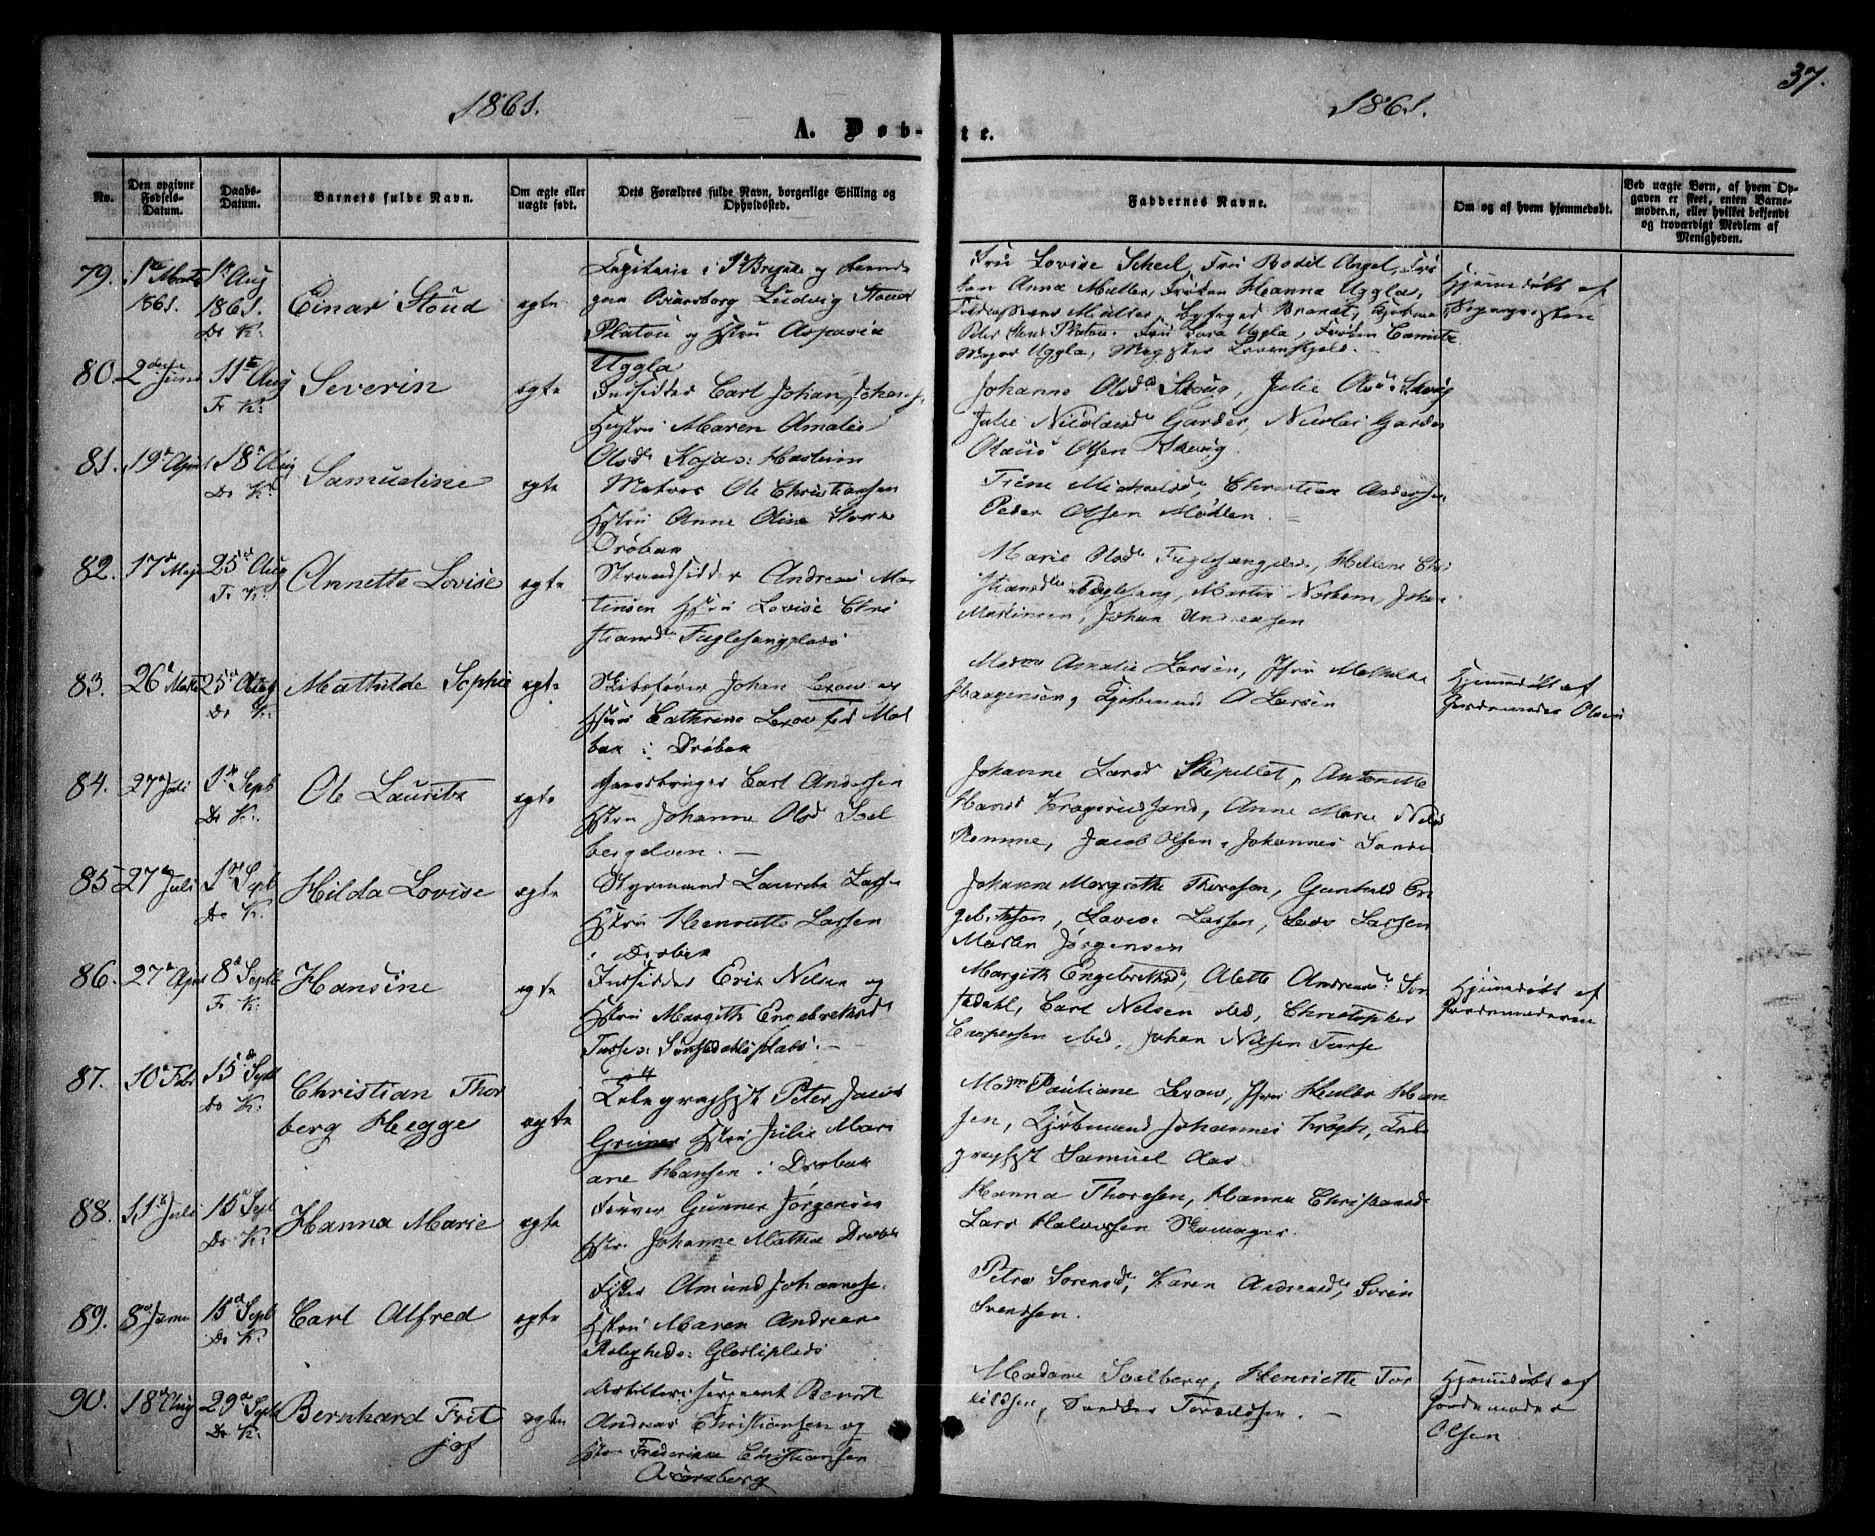 37.
1861.
1861.
A. Døb-te.
No.
Den opgivne Fødsels-Datum.
Daabs-Datum.
Barnets fulde Navn.
Om ægte eller uægte født.
Dets Forældres fulde Navn, borgerlige Stilling og Opholdssted.
Faddernes Navne.
Om og af hvem hjemmedøbt.
Ved uægte Børn, af hvem Op-
gaven er skeet, enten Barne-
moderen, eller hvilket bekjendt
og troværdigt Medlem af
Menigheden.
79.
1861.
1ste Aug
1861.
Dr K:
Einar Stoud
egte
Oscarsborg Ludvig Stoud
Platou og Hstru Aspasia
Uggla
Fru Lovise Scheel, Fru Bodil Angel, Frø
ken Anna Müller, Frøken Hanna Uggla,
Major Uggla, Løvenskjold.
Hjemmedøbt af
Sognepresten
80.
2den Juni
11te Aug
Fr K:
Severin
egte
Indsidder Carl Johan Johans
Hustru Maren Amalie
Olsd
Johanne Olsd Skoug, Julie Olsd Skoug
Julie Nicolaisd Garder, Nicolai Garder
Olaus Olsen Skoug.
81.
19d April
18d Aug
Dr K:
Samueline
egte
Matros Ole Christiansen
Hstru Anne Oline
Drøbak
Trine Michelsd, Christian Andersen
Peder Olsen Møllen.
82.
17d Maj
25d Aug
Fr K:
Annette Lovise
egte
Strandsidder Andreas Mar
tinsen Hstru Lovise Chri
stiansd Fuglesangplads
Marie Olsd Fuglesangplds, Hellene Chri
stiansd Fuglesang, Martin Norhem, Johan
Martinsen, Johan Andreasen
83.
26d Marts
25d Aug
Dr K:
Mathilde Sophie
egte
Skibsfører Johan Lexow og
Hstru Cathrine Lexow fød Mol
bak i Drøbak
Madm Amalie Larsen, Jfru Mathilde
Haagensen, Kjøbmand A Larsen
Hjemmedøbt af
Jordemoder Olsen
84.
27d Juli
1ste Sept
Dr K:
Ole Lauritz
egte
Carl Andersen
Hstru Johanne Olsd Sol
bergelven.
Johanne Larsd Skipellet, Antonette
Hansd Kragerudsand, Anne Marie Nilsd
Romme, Jacob Olsen, Johannes Sande
85
27d Juli
1ste Sept
Dr K:
Hilda Lovise
egte
Styrmand Lauritz Larsen
Hstru Henriette Larsen
i Drøbak
Johanne Margrethe Thoresen, Gunhild En
gebretsen, Lovise Larsen, Lars Larsen
Martin Jørgensen
86.
27d April
8d Septb
Fr K:
Hansine
egte
Indsidder Eric Nelsen og
Hstru Margith Engebrethsd
Margith Engebrethsd, Alette Andreasd Søn
stedahl, Carl Nelsen ibid, Christopher
Caspersen ibid, Johan Nelsen
Hjemmedøbt af
Jordemoderen
87.
10d Febr
15d Sept
Dr K:
Christian Thor
berg Hegge
egte
Telegraphist Peter Jacob
Grüner Hstru Julie Mari
ane Hansen i Drøbak
Madm Pauliane Lexow, Jfru Hulda Han
sen, Kjøbmand Johannes Krogh, Tele
graphist Samuel Aas
88.
11te Juli
15d Sept
Dr K:
Hanna Marie
egte
Gunner Jørgensen
Hstr. Johanne Mathea Drøbak
Hanna Thoresen, Hanna Christiansd
Lars Halvorsen Skomager.
89.
8d Janu
15d Septb
Dr K:
Carl Alfred
egte
Fisker Amund Johannese.
Hstru Maren Andreas
Petra Sørensd, Karen Andreasd, Søren
Svendsen.
90.
18d Aug
29d Sept
Dr K:
Bernhard Frit
jof
egte
Artilleri sergeant Bernt
Andreas Christiansen og
Hstr Frederikke Christiansen
Oscarsborg
Madame Soelberg, Henriette Tor
kildsen, Torkildsen.
Hjemmedøbt af
Jordemoder
Olsen